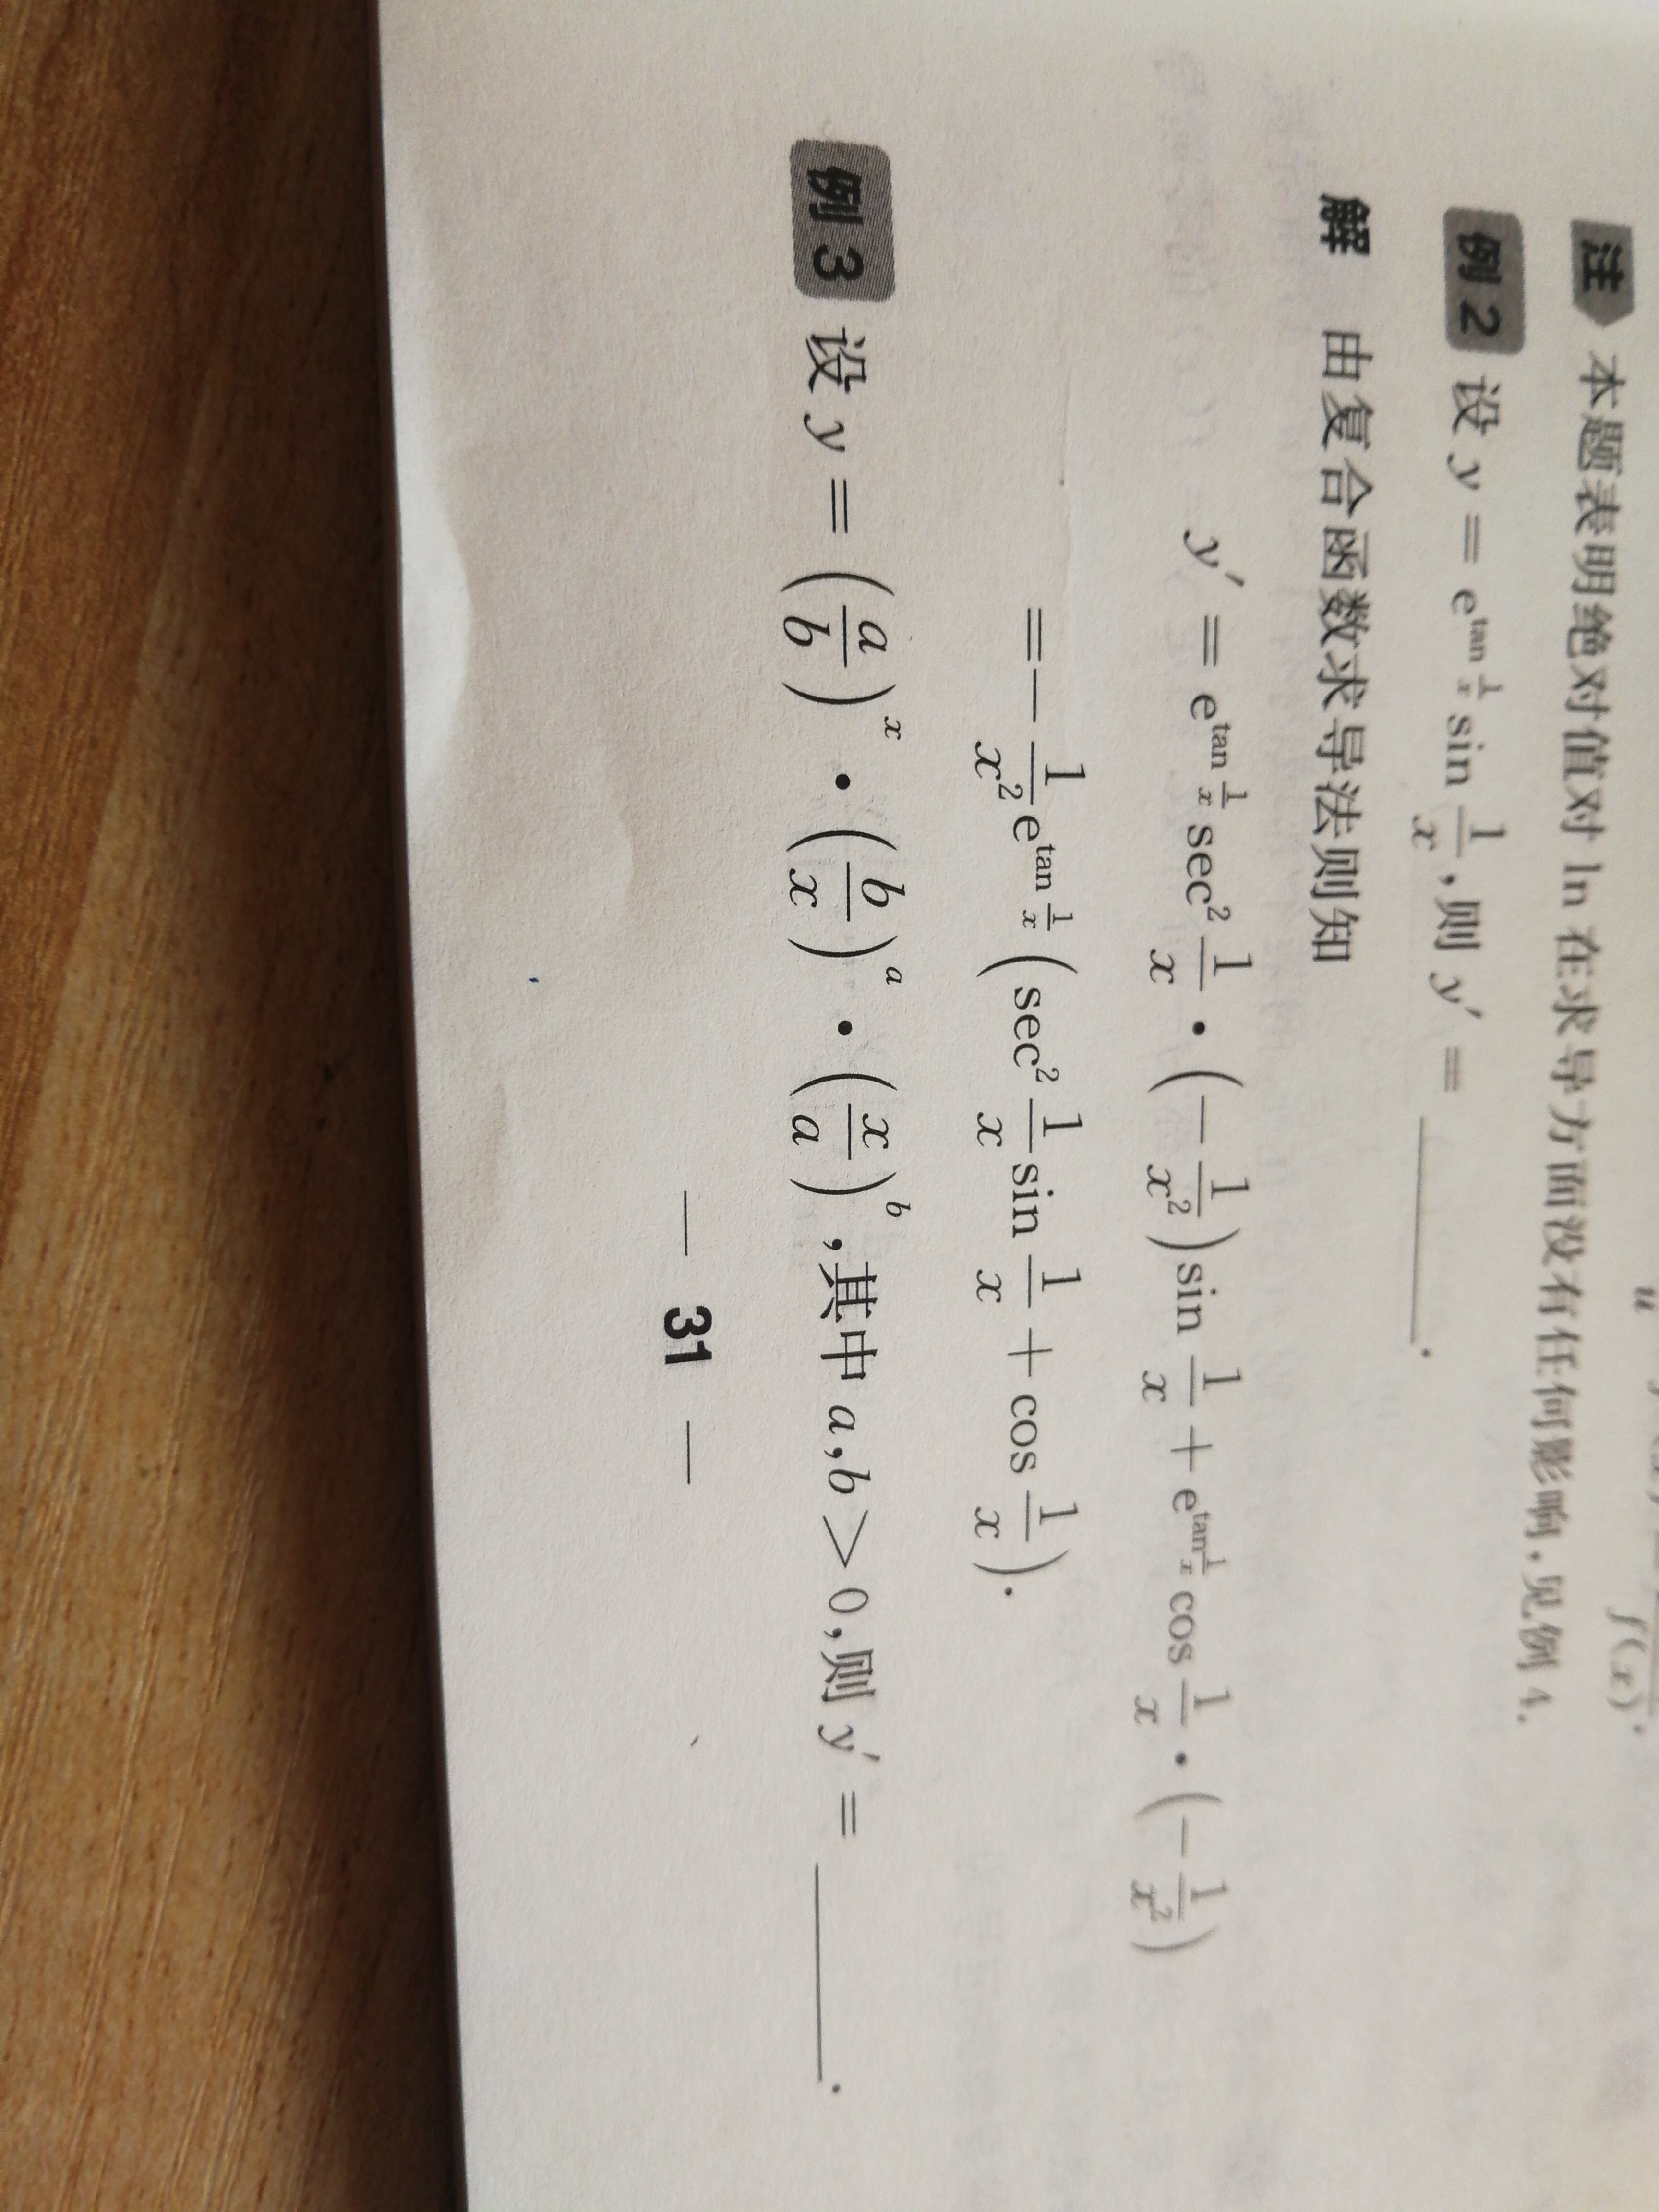 f(x)
注 本题表明绝对值对 ln 在求导方面没有任何影响,见例 4.
例 2 设 y = e^{tan 1/x} sin 1/x ,则 y′ = ______.
解 由复合函数求导法则知
y′ = e^{tan 1/x} sec² 1/x · (− 1/x²) sin 1/x + e^{tan 1/x} cos 1/x · (− 1/x²)
= − 1/x² e^{tan 1/x} (sec² 1/x sin 1/x + cos 1/x).
例 3 设 y = (a/b)^x · (b/x)^a · (x/a)^b ,其中 a,b > 0,则 y′ = ______.
— 31 —